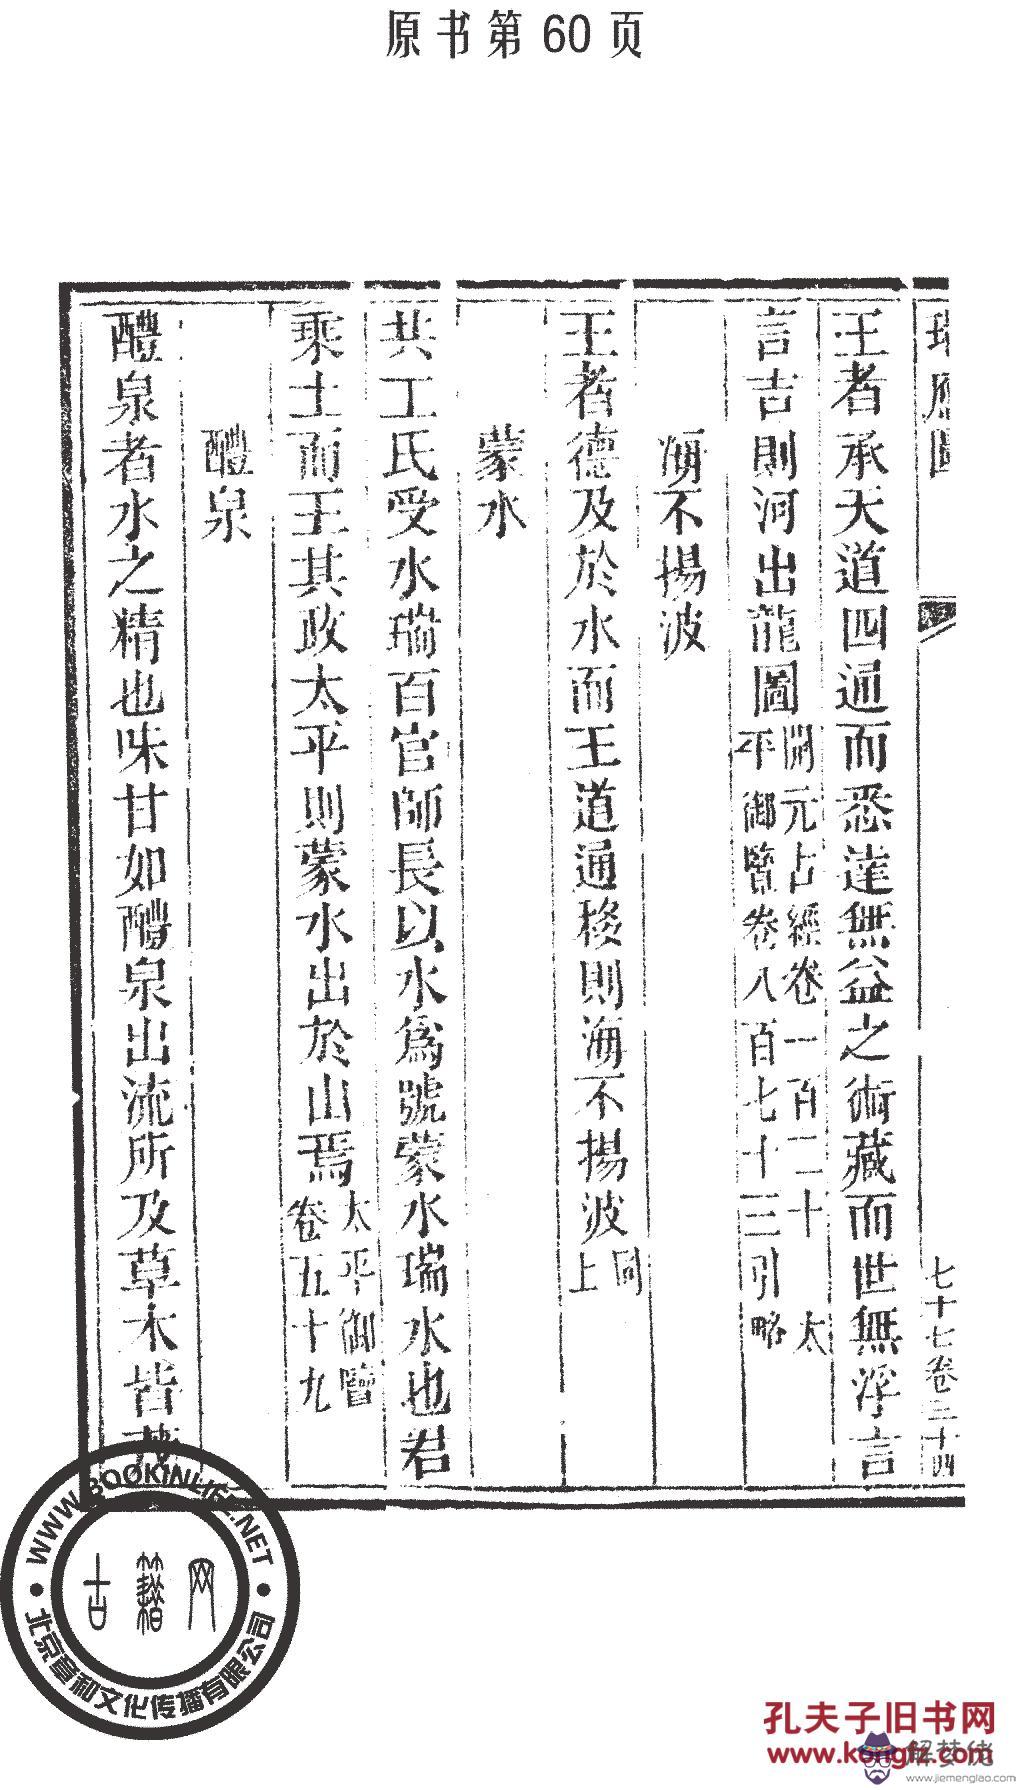 原书第60页
瑞應圖
七十七卷三十四
王者承天道四通而悉達無益之術藏而世無浮言
言吉則河出龍圖開元占經卷一百二十 太
平御覽卷八百七十三引略
海不揚波
王者德及於水而王道通移則海不揚波同
上
蒙水
共工氏受水瑞百官師長以水爲號蒙水瑞水也君
乘土而王其政太平則蒙水出於山焉太平御覽
卷五十九
醴泉
醴泉者水之精也味甘如醴泉出流所及草木皆茂
WWW.BOOKINLIFE.NET
古籍网
北京章和文化传播有限公司
孔夫子旧书网
www.kongfz.com
解梦佬
www.jiemenglao.com